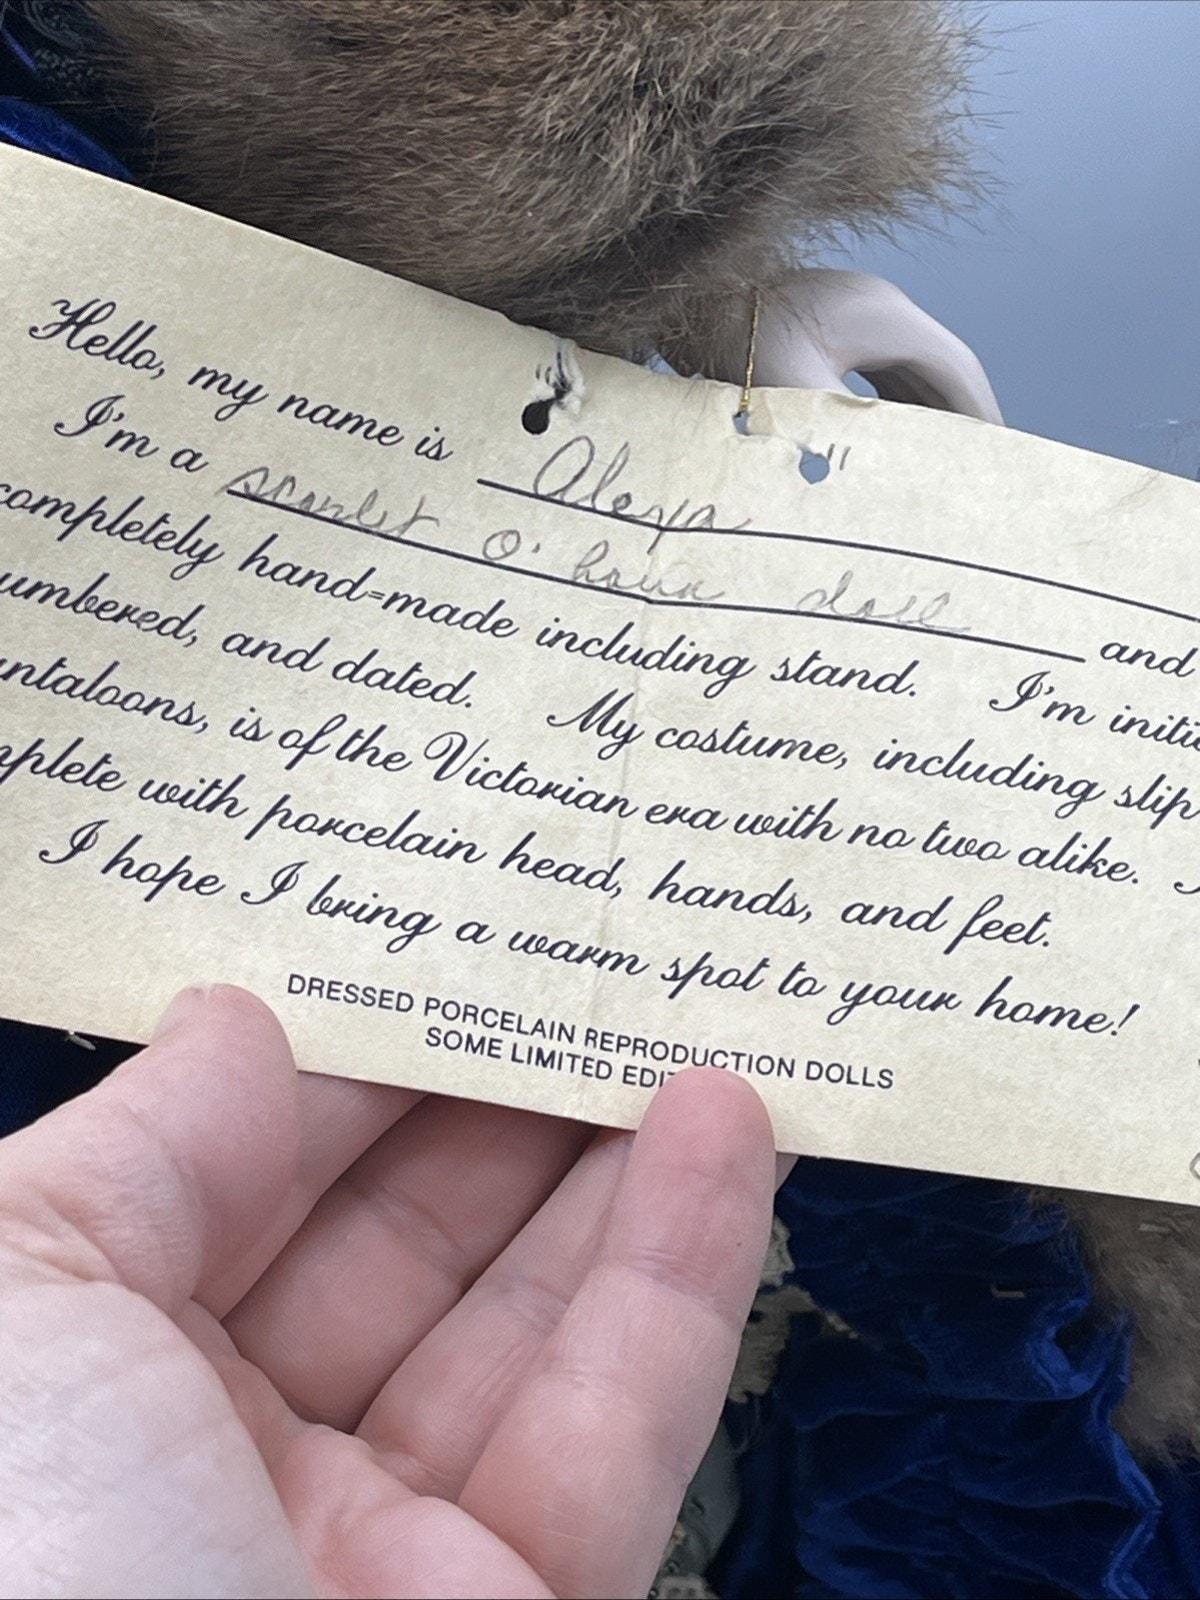 Hello, my name is Alexa
I'm a scarlet O' hara doll and
completely hand=made including stand. I'm initi
umbered, and dated. My costume, including slip
ntaloons, is of the Victorian era with no two alike.
mplete with porcelain head, hands, and feet.
I hope I bring a warm spot to your home!
DRESSED PORCELAIN REPRODUCTION DOLLS
SOME LIMITED EDI